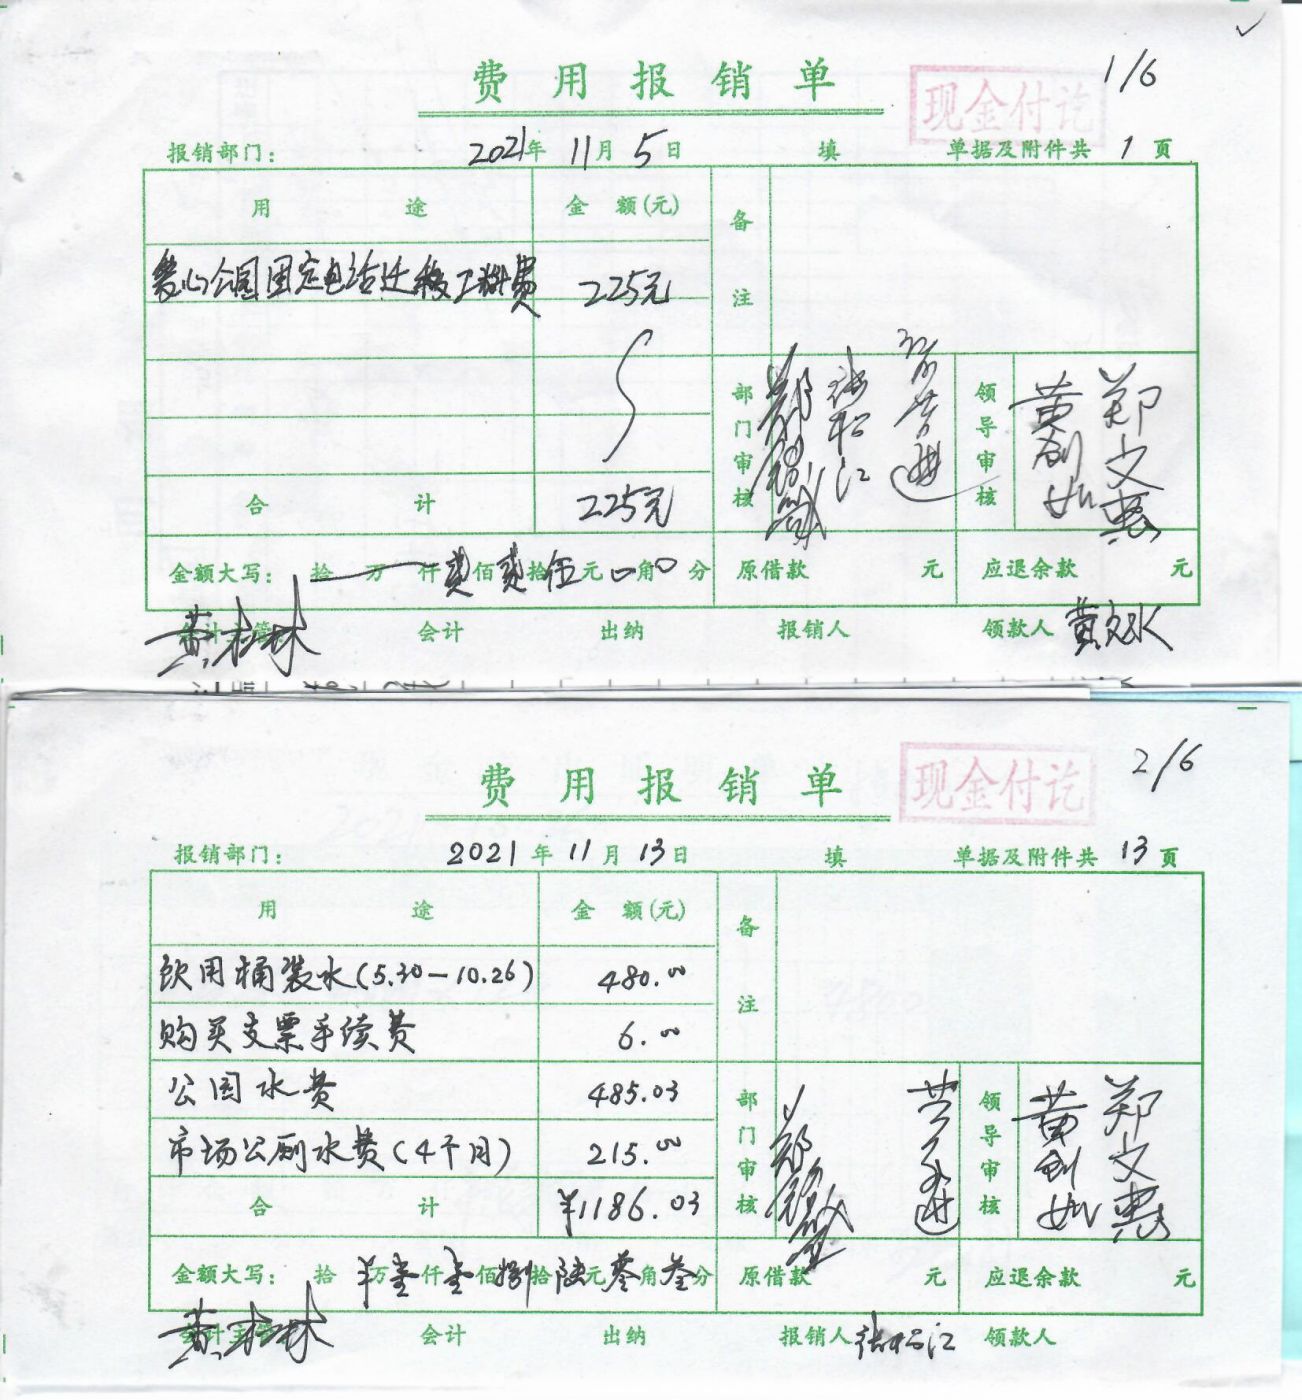 费用报销单
现金付讫
1/6
报销部门： 2021年 11月 5日 填 单据及附件共 1 页
用途 金额(元) 备注
爱心公园固定电话迁移工料费 225元
部门审核 张松江 领导审核 黄创如 郑文惠
合计 225元
金额大写： 拾 万 仟 贰佰 贰拾 伍元 0角 0分 原借款 元 应退余款 元
黄松林
会计主管： 会计 出纳 报销人 领款人 黄文水
费用报销单
现金付讫
2/6
报销部门： 2021年 11月 13日 填 单据及附件共 13 页
用途 金额(元) 备注
饮用桶装水(5.30-10.26) 480.00
购买支票手续费 6.00
公园水费 485.03
市场公厕水费(4个月) 215.00
部门审核 领导审核 黄创如 郑文惠
合计 ¥1186.03
金额大写： 拾 ¥万 壹仟 壹佰 捌拾 陆元 零角 叁分 原借款 元 应退余款 元
黄松林
会计主管 会计 出纳 报销人 张松江 领款人